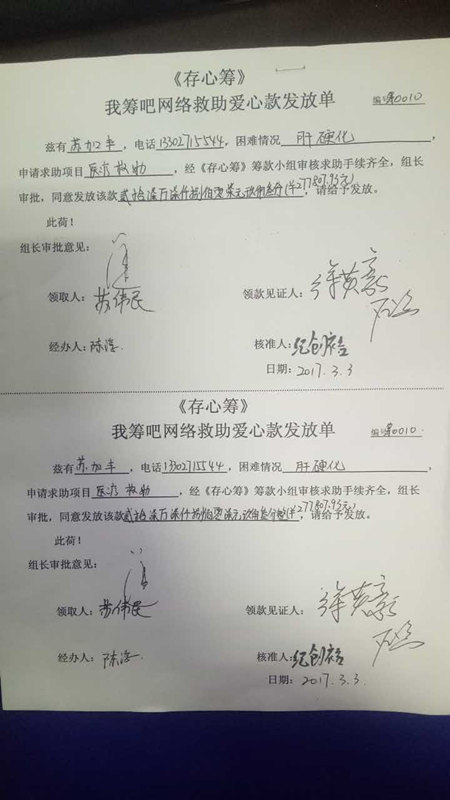 《存心筹》
我筹吧网络救助爱心款发放单 编号第0010
兹有 苏加丰 ，电话13302715544，困难情况 肝硬化 ，
申请求助项目 医疗救助 ，经《存心筹》筹款小组审核求助手续齐全，组长
审批，同意发放该款贰拾柒万柒仟捌佰零柒元玖角叁分(¥277807.93元)，请给予发放。
此荷！
组长审批意见：
领取人：苏伟民 领款见证人：
经办人：陈淳 核准人：纪创裕
日期：2017.3.3
《存心筹》
我筹吧网络救助爱心款发放单 编号第0010
兹有 苏加丰 ，电话13302715544，困难情况 肝硬化 ，
申请求助项目 医疗救助 ，经《存心筹》筹款小组审核求助手续齐全，组长
审批，同意发放该款贰拾柒万柒仟捌佰零柒元玖角叁分(¥277807.93元)，请给予发放。
此荷！
组长审批意见：
领取人：苏伟民 领款见证人：
经办人：陈淳 核准人：纪创裕
日期：2017.3.3.